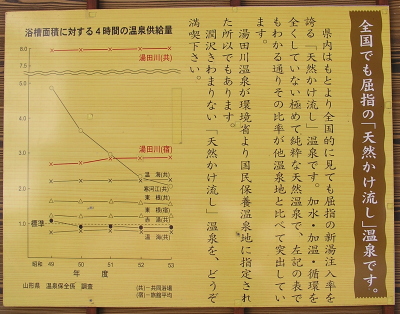 全国でも屈指の「天然かけ流し」温泉です。
県内はもとより全国的に見ても屈指の新湯注入率を
誇る「天然かけ流し」温泉です。加水・加温・循環を
全くしていない極めて純粋な天然温泉で、左記の表で
もわかる通りその比率が他温泉地と比べて突出してい
ます。
湯田川温泉が環境省より国民保養温泉地に指定され
た所以でもあります。
潤沢きわまりない「天然かけ流し」温泉を、どうぞ
満喫下さい。
浴槽面積に対する4時間の温泉供給量
8.0
湯田川(共)
5.0
4.0
3.0
湯田川(宿)
2.0
温海(共)
寒河江(共)
東根(共)
東根(宿)
標準
赤湯(共)
温海(宿)
0
昭和 49 50 51 52 53
年度
山形県 温泉保全係 調査
(共)―共同浴場
(宿)―旅館平均